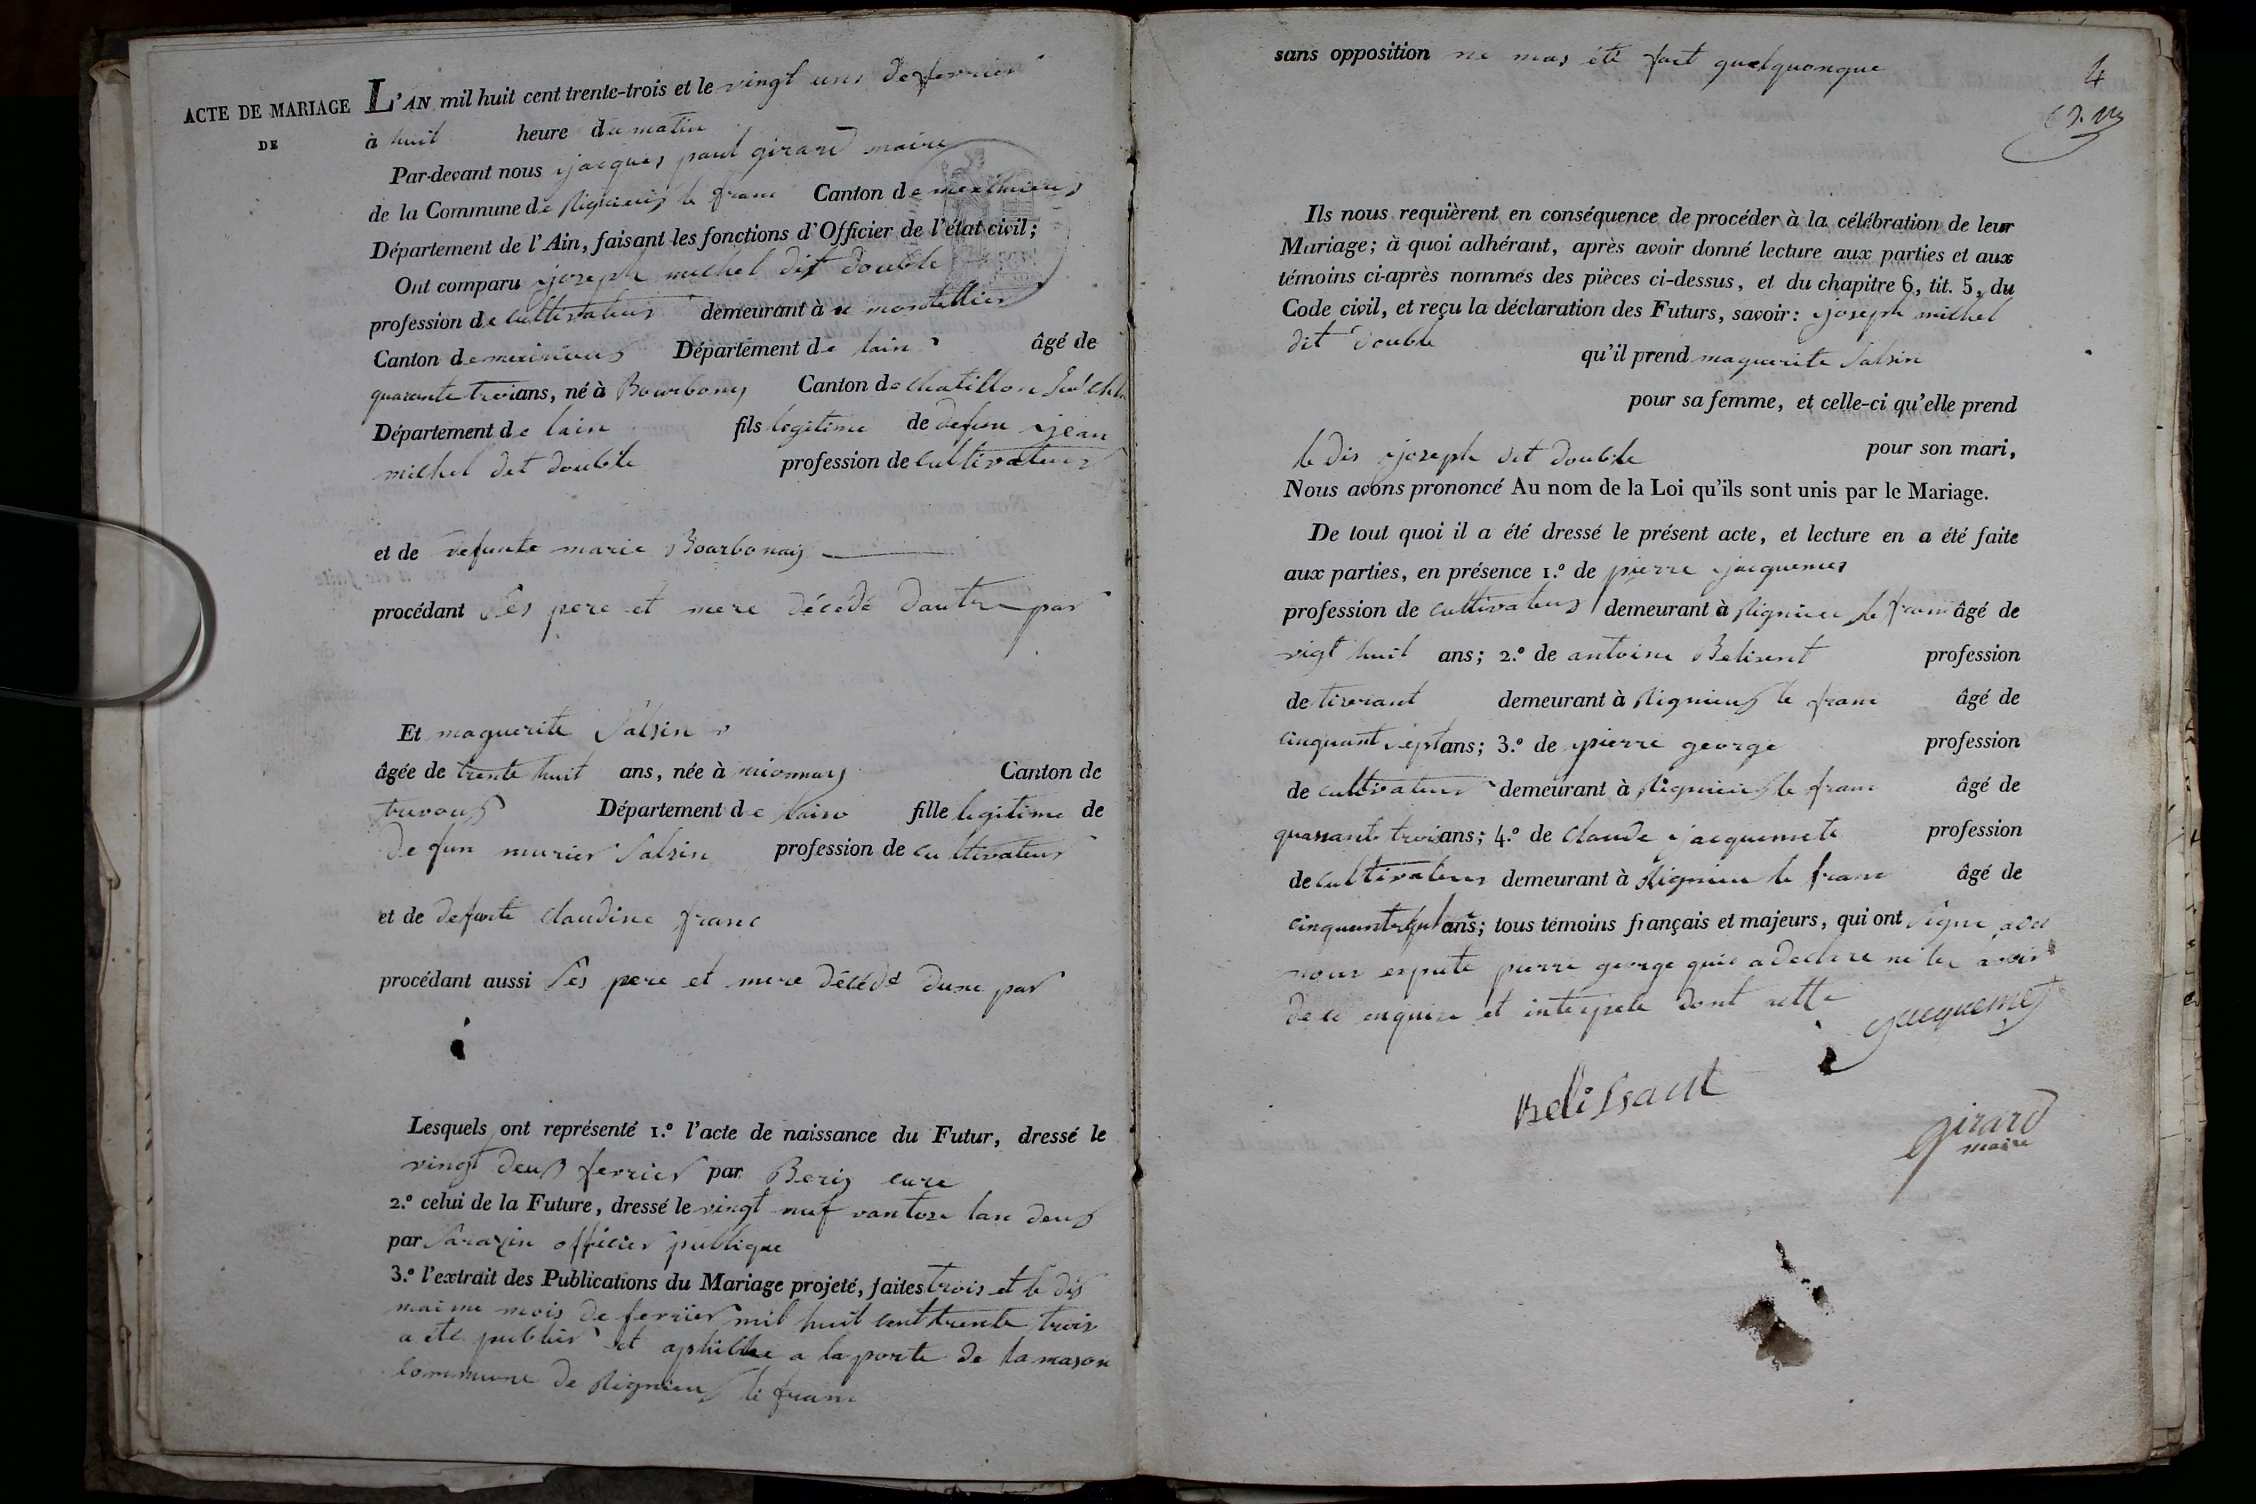 ACTE DE MARIAGE
DE
L'AN mil huit cent trente-trois et le vingt uns de ferrier
à huit heure du matin
Par-devant nous jacques paul girard maire
de la Commune de Rignieus le franc Canton de meximieus
Département de l'Ain, faisant les fonctions d'Officier de l'état civil;
Ont comparu joseph michel dit double
profession de cultivateur demeurant à montellier
Canton de Département de lain âgé de
quarante trois ans, né à Canton de chatillon
Département de lain fils legitime de defun jean
michel dit double profession de cultivateur
et de defunte marie Bourbonais
procédant ses pere et mere décédé dautre par
Et maguerite Salsin
âgée de trente huit ans, née à mionnay Canton de
trevous Département de lain fille legitime de
defun Salsin profession de cultivateur
et de defunte claudine franc
procédant aussi ses pere et mere décédé dune par
Lesquels ont représenté 1.º l'acte de naissance du Futur, dressé le
vingt deus ferrier par cure
2.º celui de la Future, dressé le vingt neuf vantose lan deus
par Sarazin officier publique
3.º l'extrait des Publications du Mariage projeté, faites trois et le dis
maime mois de ferrier mil huit cent trente trois
a été publier et a la porte de la mason
commune de Rignieus le franc
sans opposition ne mas été fait quelquonque
4
Ils nous requièrent en conséquence de procéder à la célébration de leur
Mariage; à quoi adhérant, après avoir donné lecture aux parties et aux
témoins ci-après nommés des pièces ci-dessus, et du chapitre 6, tit. 5, du
Code civil, et reçu la déclaration des Futurs, savoir: joseph michel
dit double qu'il prend maguerite Salsin
pour sa femme, et celle-ci qu'elle prend
le dis joseph dit double pour son mari,
Nous avons prononcé Au nom de la Loi qu'ils sont unis par le Mariage.
De tout quoi il a été dressé le présent acte, et lecture en a été faite
aux parties, en présence 1.º de pierre jacquemes
profession de cultivateur demeurant à Rignieu le franc âgé de
vigt huit ans; 2.º de antoine Belisent profession
de tiserant demeurant à Rignieus le franc âgé de
cinquant sept ans; 3.º de pierre george profession
de cultivateur demeurant à Rignieus le franc âgé de
quarante trois ans; 4.º de claude jacquemete profession
de cultivateur demeurant à Rignieu le franc âgé de
ans; tous témoins français et majeurs, qui ont signe avec
nous pierre george quie a declare ne les avoir
de ce enquire et dont acte
jacquemet
Belissant
girard
maire